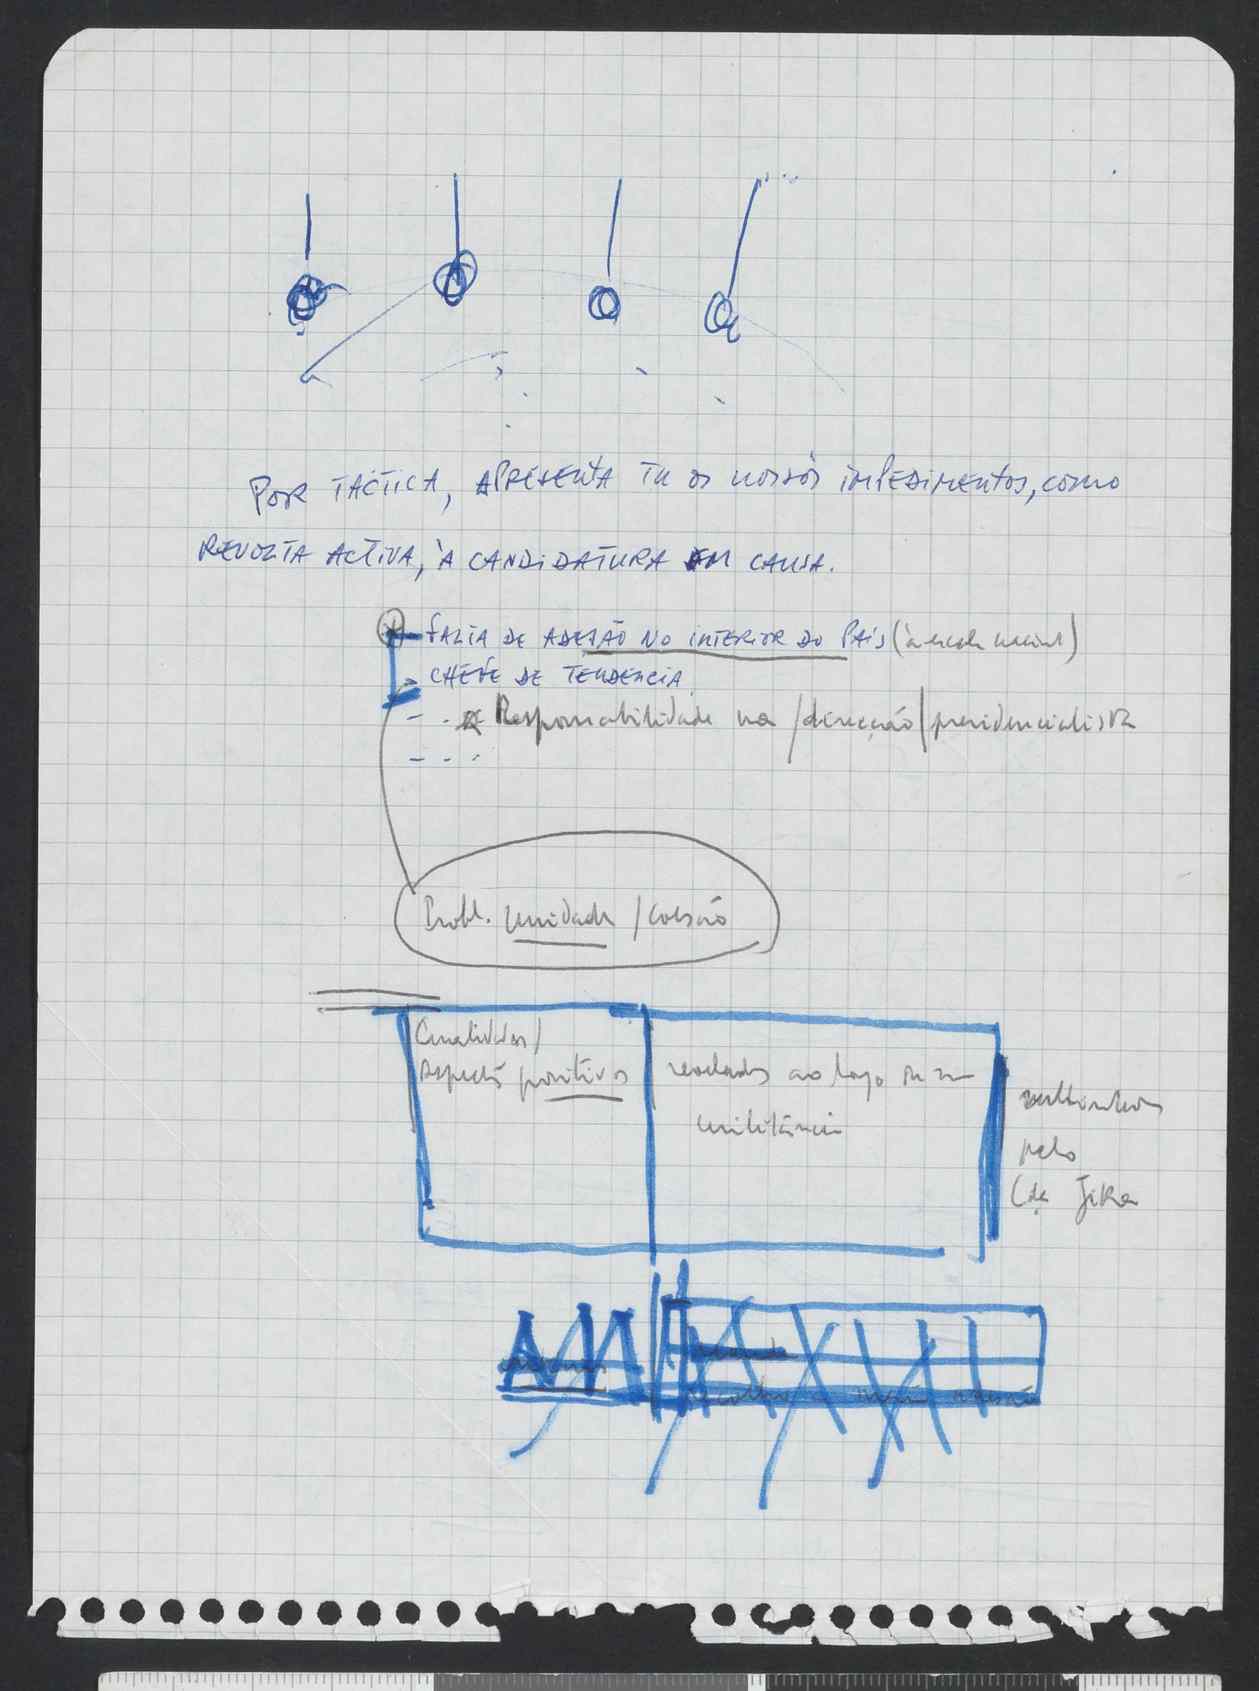 POR TÁCTICA, APRESENTA TU OS NOSSOS IMPEDIMENTOS, COMO
REVOLTA ACTIVA, À CANDIDATURA EM CAUSA.
- FALTA DE ADESÃO NO INTERIOR DO PAÍS (à escala nacional)
- CHEFE DE TENDENCIA
- Responsabilidade na /direcção/ presidencialista
- - -
Probl. Unidade / Coesão
Qualidades /
Aspectos positivos
revelados ao longo da
militância
pelo
Cda Jika